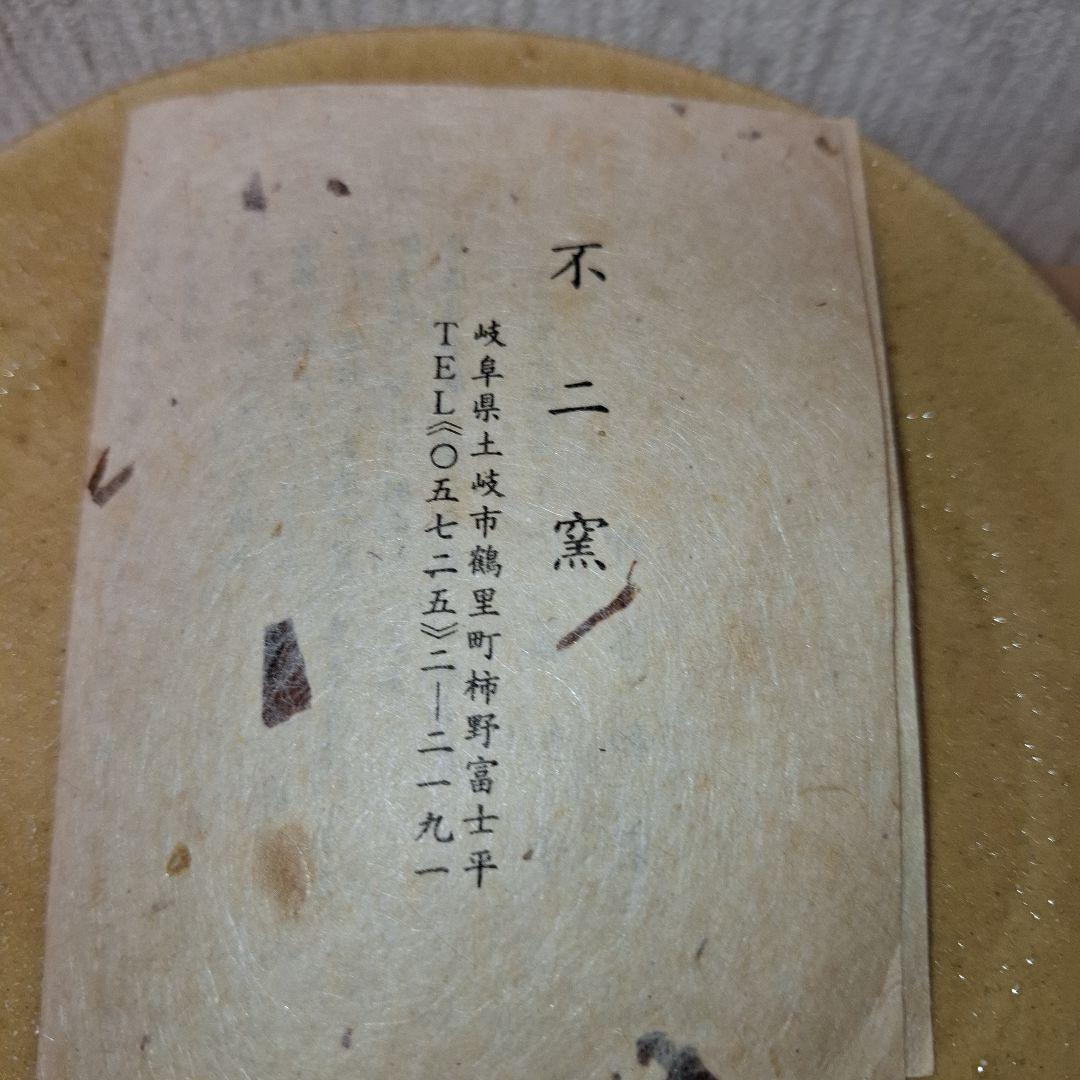 不二窯
岐阜県土岐市鶴里町柿野富士平
TEL《〇五七二五》二―二一九一